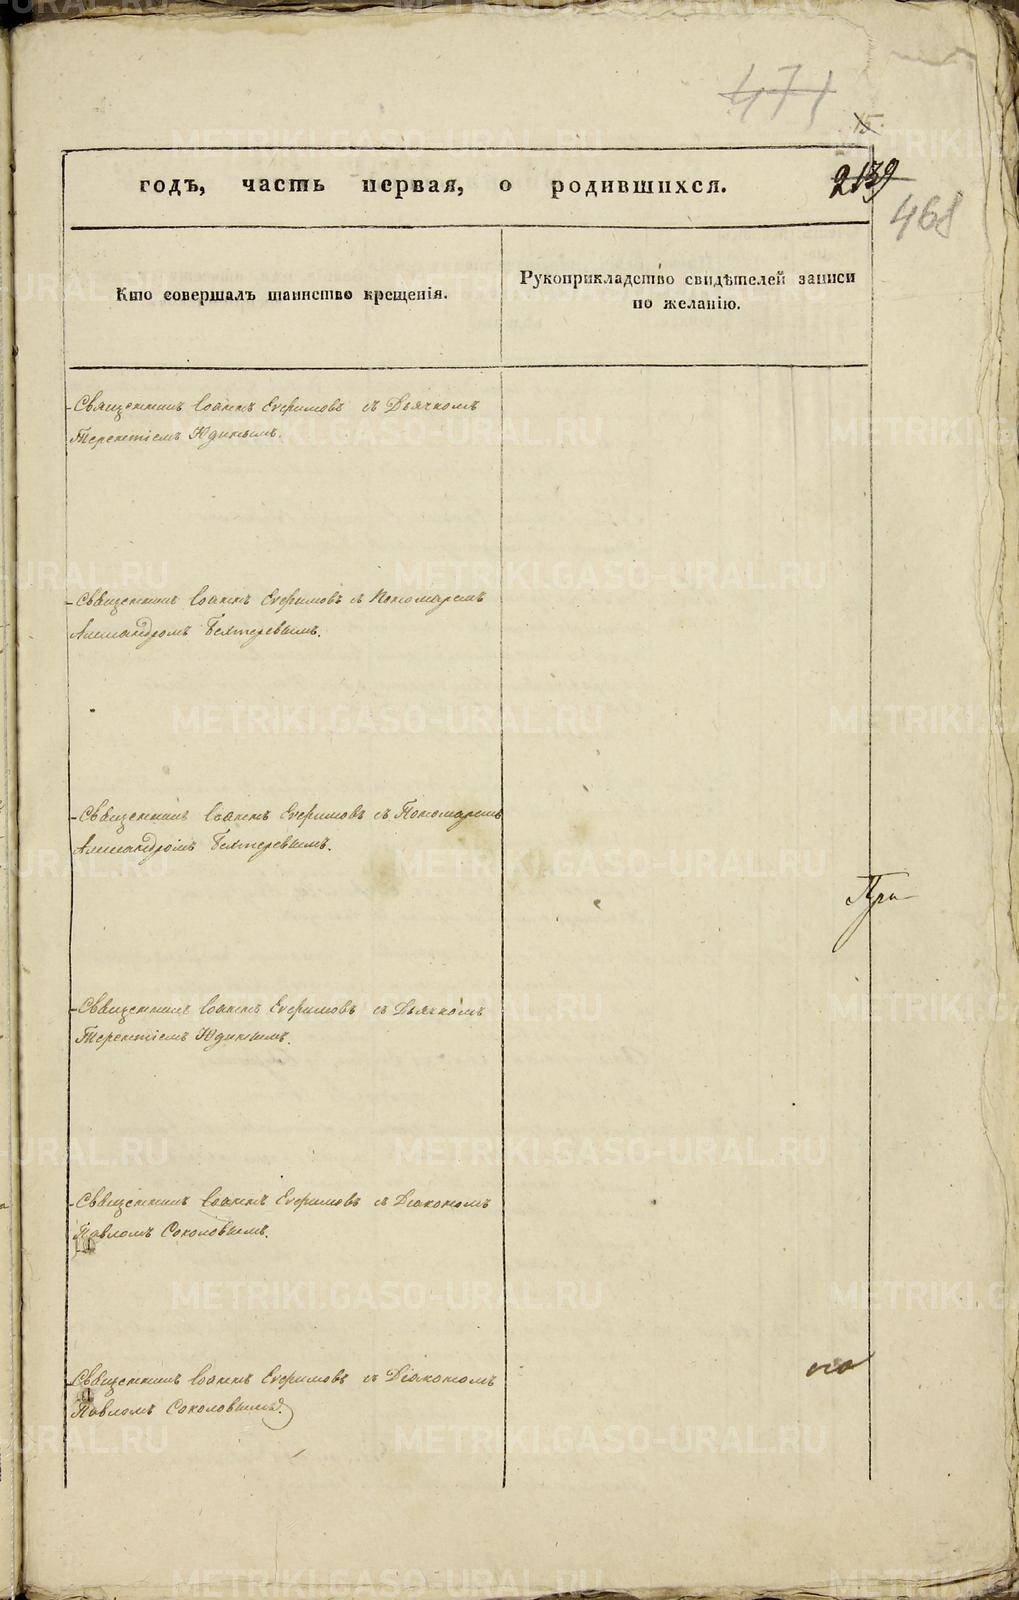 471
15.
годъ, часть первая, о родившихся.
2139
468
Кто совершалъ таинство крещенія.
Рукоприкладство свидѣтелей записи
по желанію.
Священникъ Іоаннъ Ефримовъ съ Дьячкомъ
Терентіемъ Юдинымъ.
Священникъ Іоаннъ Ефримовъ съ Пономаремъ
Александромъ Бехтеревымъ.
Священникъ Іоаннъ Ефримовъ съ Пономаремъ
Александромъ Бехтеревымъ.
При
Священникъ Іоаннъ Ефримовъ съ Дьячкомъ
Терентіемъ Юдинымъ.
Священникъ Іоаннъ Ефримовъ съ Діакономъ
Павломъ Соколовымъ.
Священникъ Іоаннъ Ефримовъ съ Діакономъ
Павломъ Соколовымъ.
METRIKI.GASO-URAL.RU